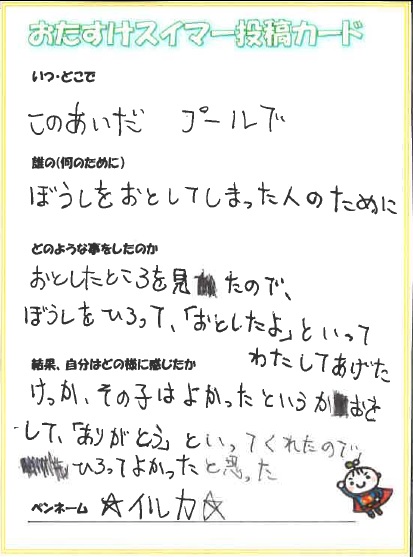 おたすけスイマー投稿カード
いつ・どこで
このあいだ プールで
誰の(何のために)
ぼうしをおとしてしまった人のために
どのような事をしたのか
おとしたところを見たので、
ぼうしをひろって、「おとしたよ」といって
わたしてあげた
結果、自分はどの様に感じたか
けっか、その子はよかったというかおを
して、「ありがとう」といってくれたので
ひろってよかったと思った
ペンネーム ☆イルカ☆